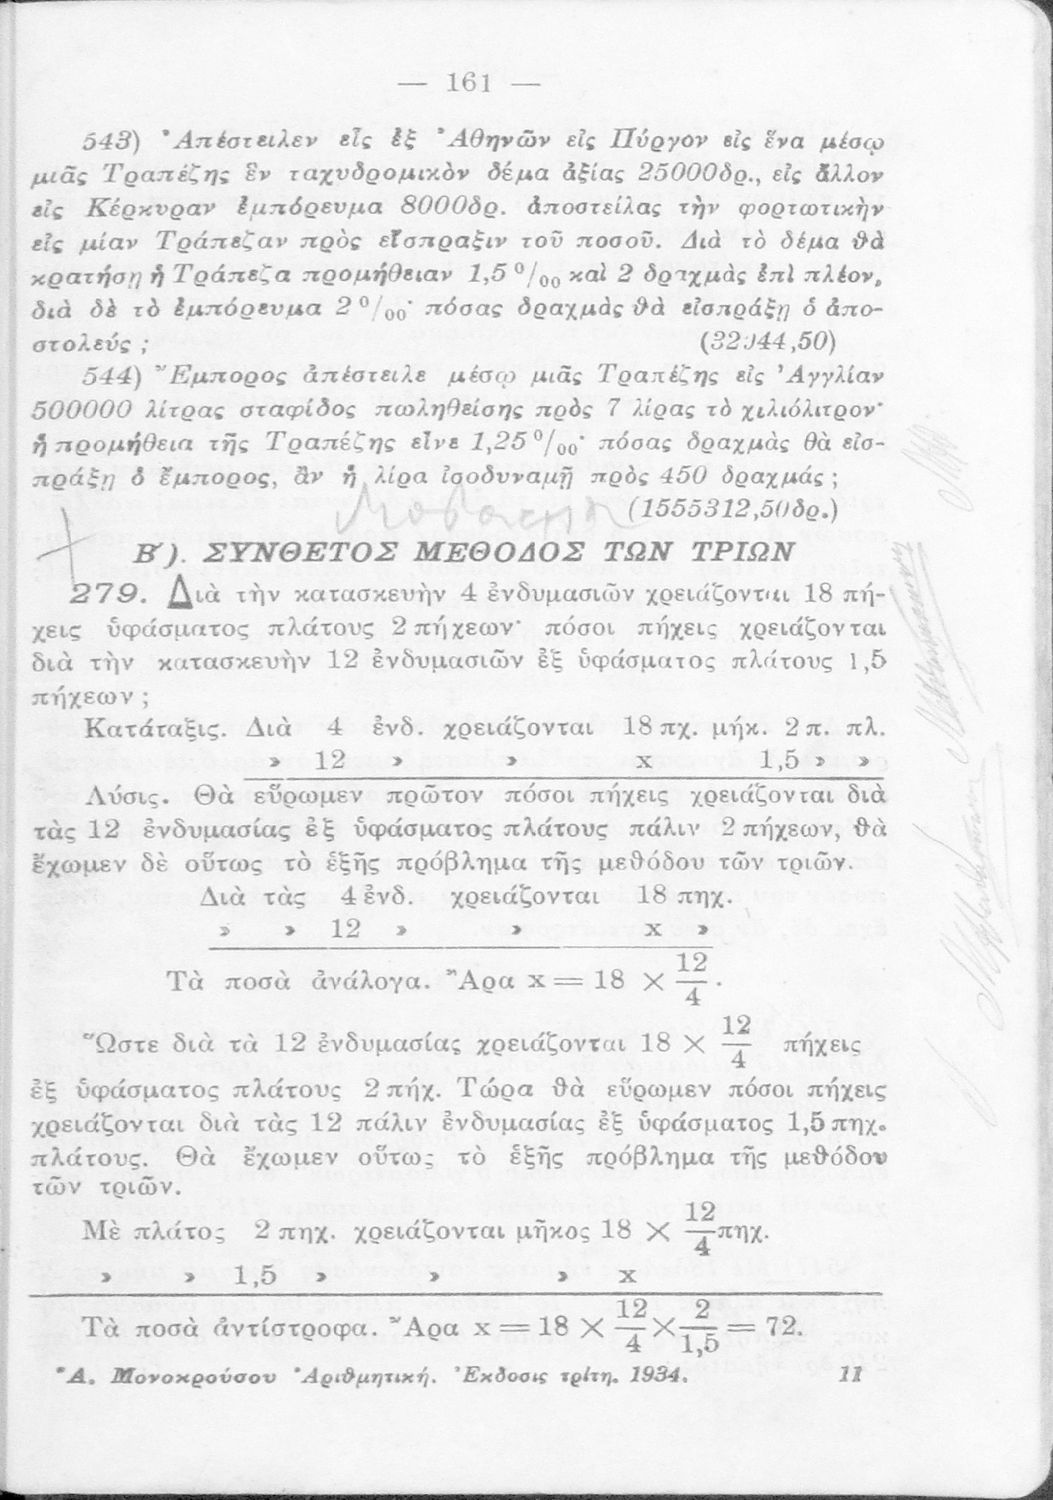 — 161 —
543) Ἀπέστειλεν εἷς ἐξ Ἀθηνῶν εἰς Πύργον εἰς ἕνα μέσῳ
μιᾶς Τραπέζης ἓν ταχυδρομικὸν δέμα ἀξίας 25000δρ., εἰς ἄλλον
εἰς Κέρκυραν ἐμπόρευμα 8000δρ. ἀποστείλας τὴν φορτωτικὴν
εἰς μίαν Τράπεζαν πρὸς εἴσπραξιν τοῦ ποσοῦ. Διὰ τὸ δέμα θὰ
κρατήσῃ ἡ Τράπεζα προμήθειαν 1,5 ⁰/₀₀ καὶ 2 δραχμὰς ἐπὶ πλέον,
διὰ δὲ τὸ ἐμπόρευμα 2 ⁰/₀₀· πόσας δραχμὰς θὰ εἰσπράξῃ ὁ ἀπο-
στολεύς ; (32944,50)
544) Ἔμπορος ἀπέστειλε μέσῳ μιᾶς Τραπέζης εἰς Ἀγγλίαν
500000 λίτρας σταφίδος πωληθείσης πρὸς 7 λίρας τὸ χιλιόλιτρον·
ἡ προμήθεια τῆς Τραπέζης εἶνε 1,25 ⁰/₀₀· πόσας δραχμὰς θὰ εἰσ-
πράξῃ ὁ ἔμπορος, ἂν ἡ λίρα ἰσοδυναμῇ πρὸς 450 δραχμάς ;
(1555312,50δρ.)
Β΄). ΣΥΝΘΕΤΟΣ ΜΕΘΟΔΟΣ ΤΩΝ ΤΡΙΩΝ
279. Διὰ τὴν κατασκευὴν 4 ἐνδυμασιῶν χρειάζονται 18 πή-
χεις ὑφάσματος πλάτους 2 πήχεων· πόσοι πήχεις χρειάζονται
διὰ τὴν κατασκευὴν 12 ἐνδυμασιῶν ἐξ ὑφάσματος πλάτους 1,5
πήχεων ;
Κατάταξις. Διὰ 4 ἐνδ. χρειάζονται 18 πχ. μήκ. 2 π. πλ.
» 12 » » x 1,5 » »
Λύσις. Θὰ εὕρωμεν πρῶτον πόσοι πήχεις χρειάζονται διὰ
τὰς 12 ἐνδυμασίας ἐξ ὑφάσματος πλάτους πάλιν 2 πήχεων, θὰ
ἔχωμεν δὲ οὕτως τὸ ἑξῆς πρόβλημα τῆς μεθόδου τῶν τριῶν.
Διὰ τὰς 4 ἐνδ. χρειάζονται 18 πηχ.
» » 12 » » x »
Τὰ ποσὰ ἀνάλογα. Ἄρα x = 18 × 12/4.
Ὥστε διὰ τὰ 12 ἐνδυμασίας χρειάζονται 18 × 12/4 πήχεις
ἐξ ὑφάσματος πλάτους 2 πήχ. Τώρα θὰ εὕρωμεν πόσοι πήχεις
χρειάζονται διὰ τὰς 12 πάλιν ἐνδυμασίας ἐξ ὑφάσματος 1,5 πηχ.
πλάτους. Θὰ ἔχωμεν οὕτως τὸ ἑξῆς πρόβλημα τῆς μεθόδου
τῶν τριῶν.
Μὲ πλάτος 2 πηχ. χρειάζονται μῆκος 18 × 12/4 πηχ.
» » 1,5 » » » x
Τὰ ποσὰ ἀντίστροφα. Ἄρα x = 18 × 12/4 × 2/1,5 = 72.
Ἀ. Μονοκρούσου Ἀριθμητική. Ἔκδοσις τρίτη. 1934. 11